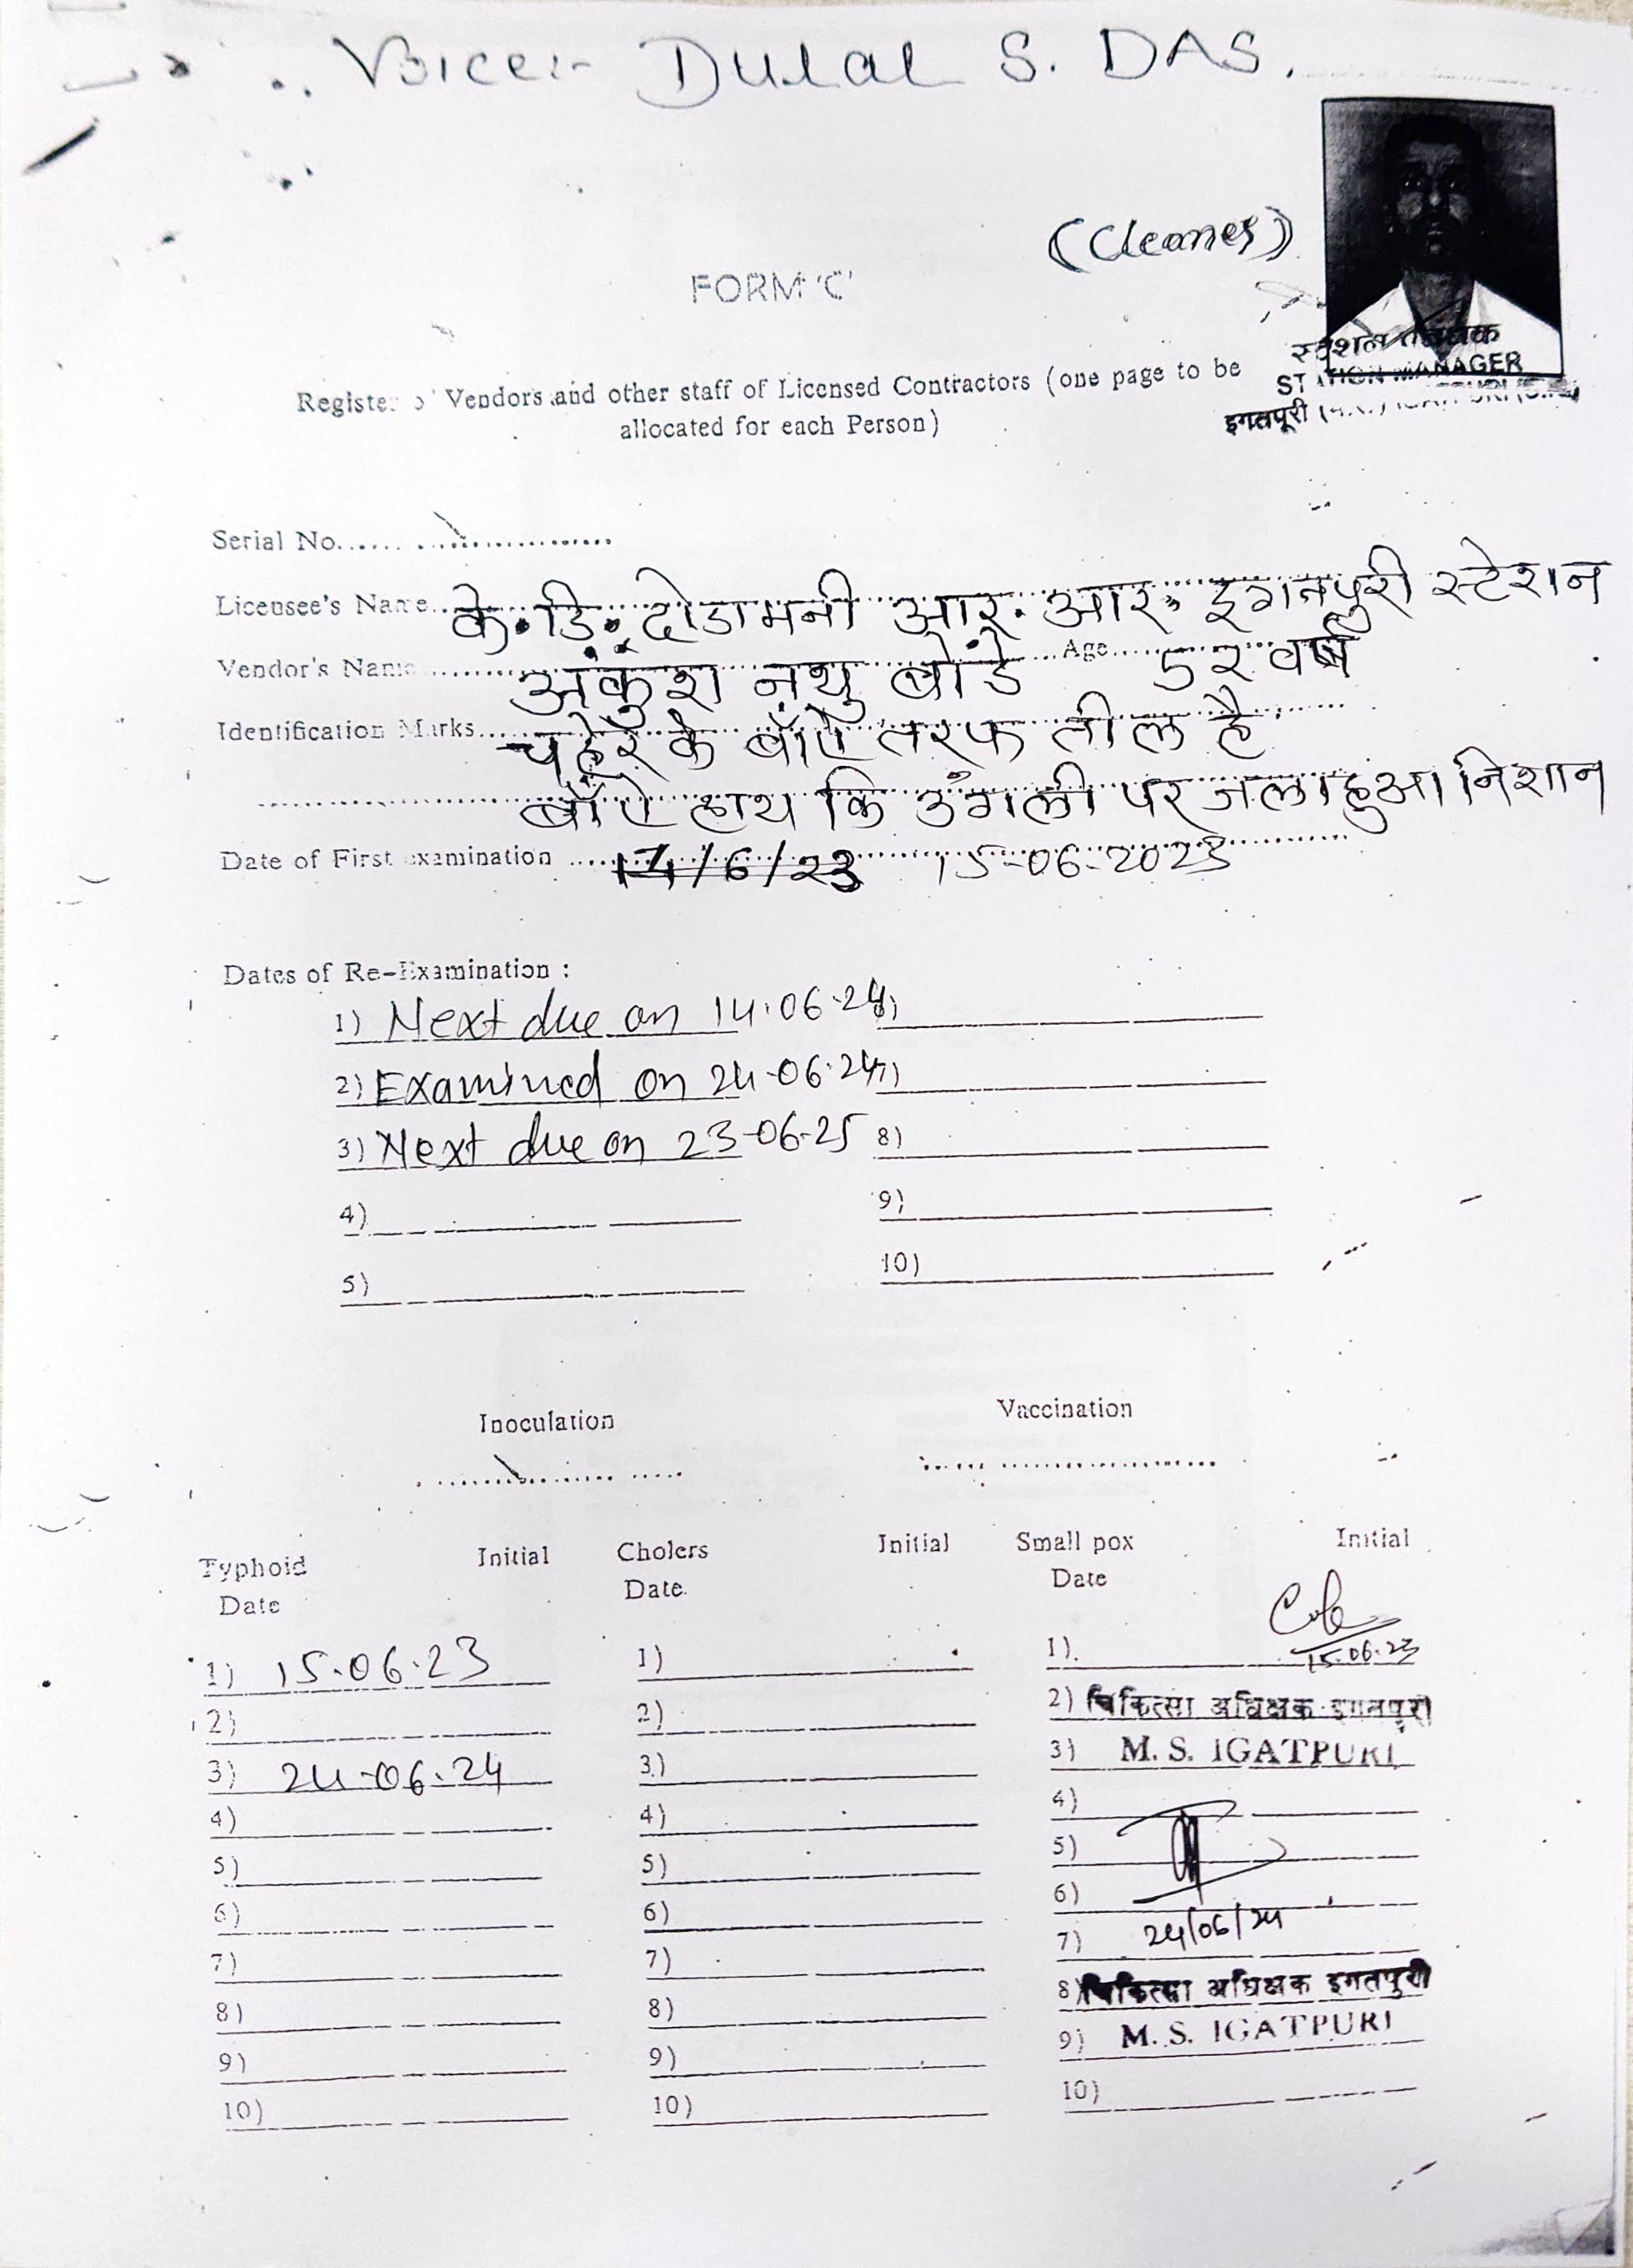 Voice:- Dulal S. DAS.
(Cleaner)
FORM 'C'
स्टेशन प्रबंधक
STATION MANAGER
इगतपूरी
Register of Vendors and other staff of Licensed Contractors (one page to be
allocated for each Person)
Serial No.
Licensee's Name के. डि. दोडामनी आर. आर. इगतपुरी स्टेशन
Vendor's Name अंकुश नथु बोंडे Age 52 वर्ष
Identification Marks चहेरे के बाँऐ तरफ तील है
बाँऐ हाथ कि उंगली पर जला हुआ निशान
Date of First examination 14/6/23 15-06-2023
Dates of Re-Examination :
1) Next due on 14.06.24 6)
2) Examined on 24.06.24 7)
3) Next due on 23-06-25 8)
4) 9)
5) 10)
Inoculation Vaccination
Typhoid Initial Cholers Initial Small pox Initial
Date Date Date
1) 15.06.23 1) 1) 15.06.23
2) 2) 2) चिकित्सा अधिक्षक इगतपुरी
3) 24-06-24 3) 3) M. S. IGATPURI
4) 4) 4)
5) 5) 5)
6) 6) 6)
7) 7) 7) 24/06/24
8) 8) 8) चिकित्सा अधिक्षक इगतपुरी
9) 9) 9) M. S. IGATPURI
10) 10) 10)